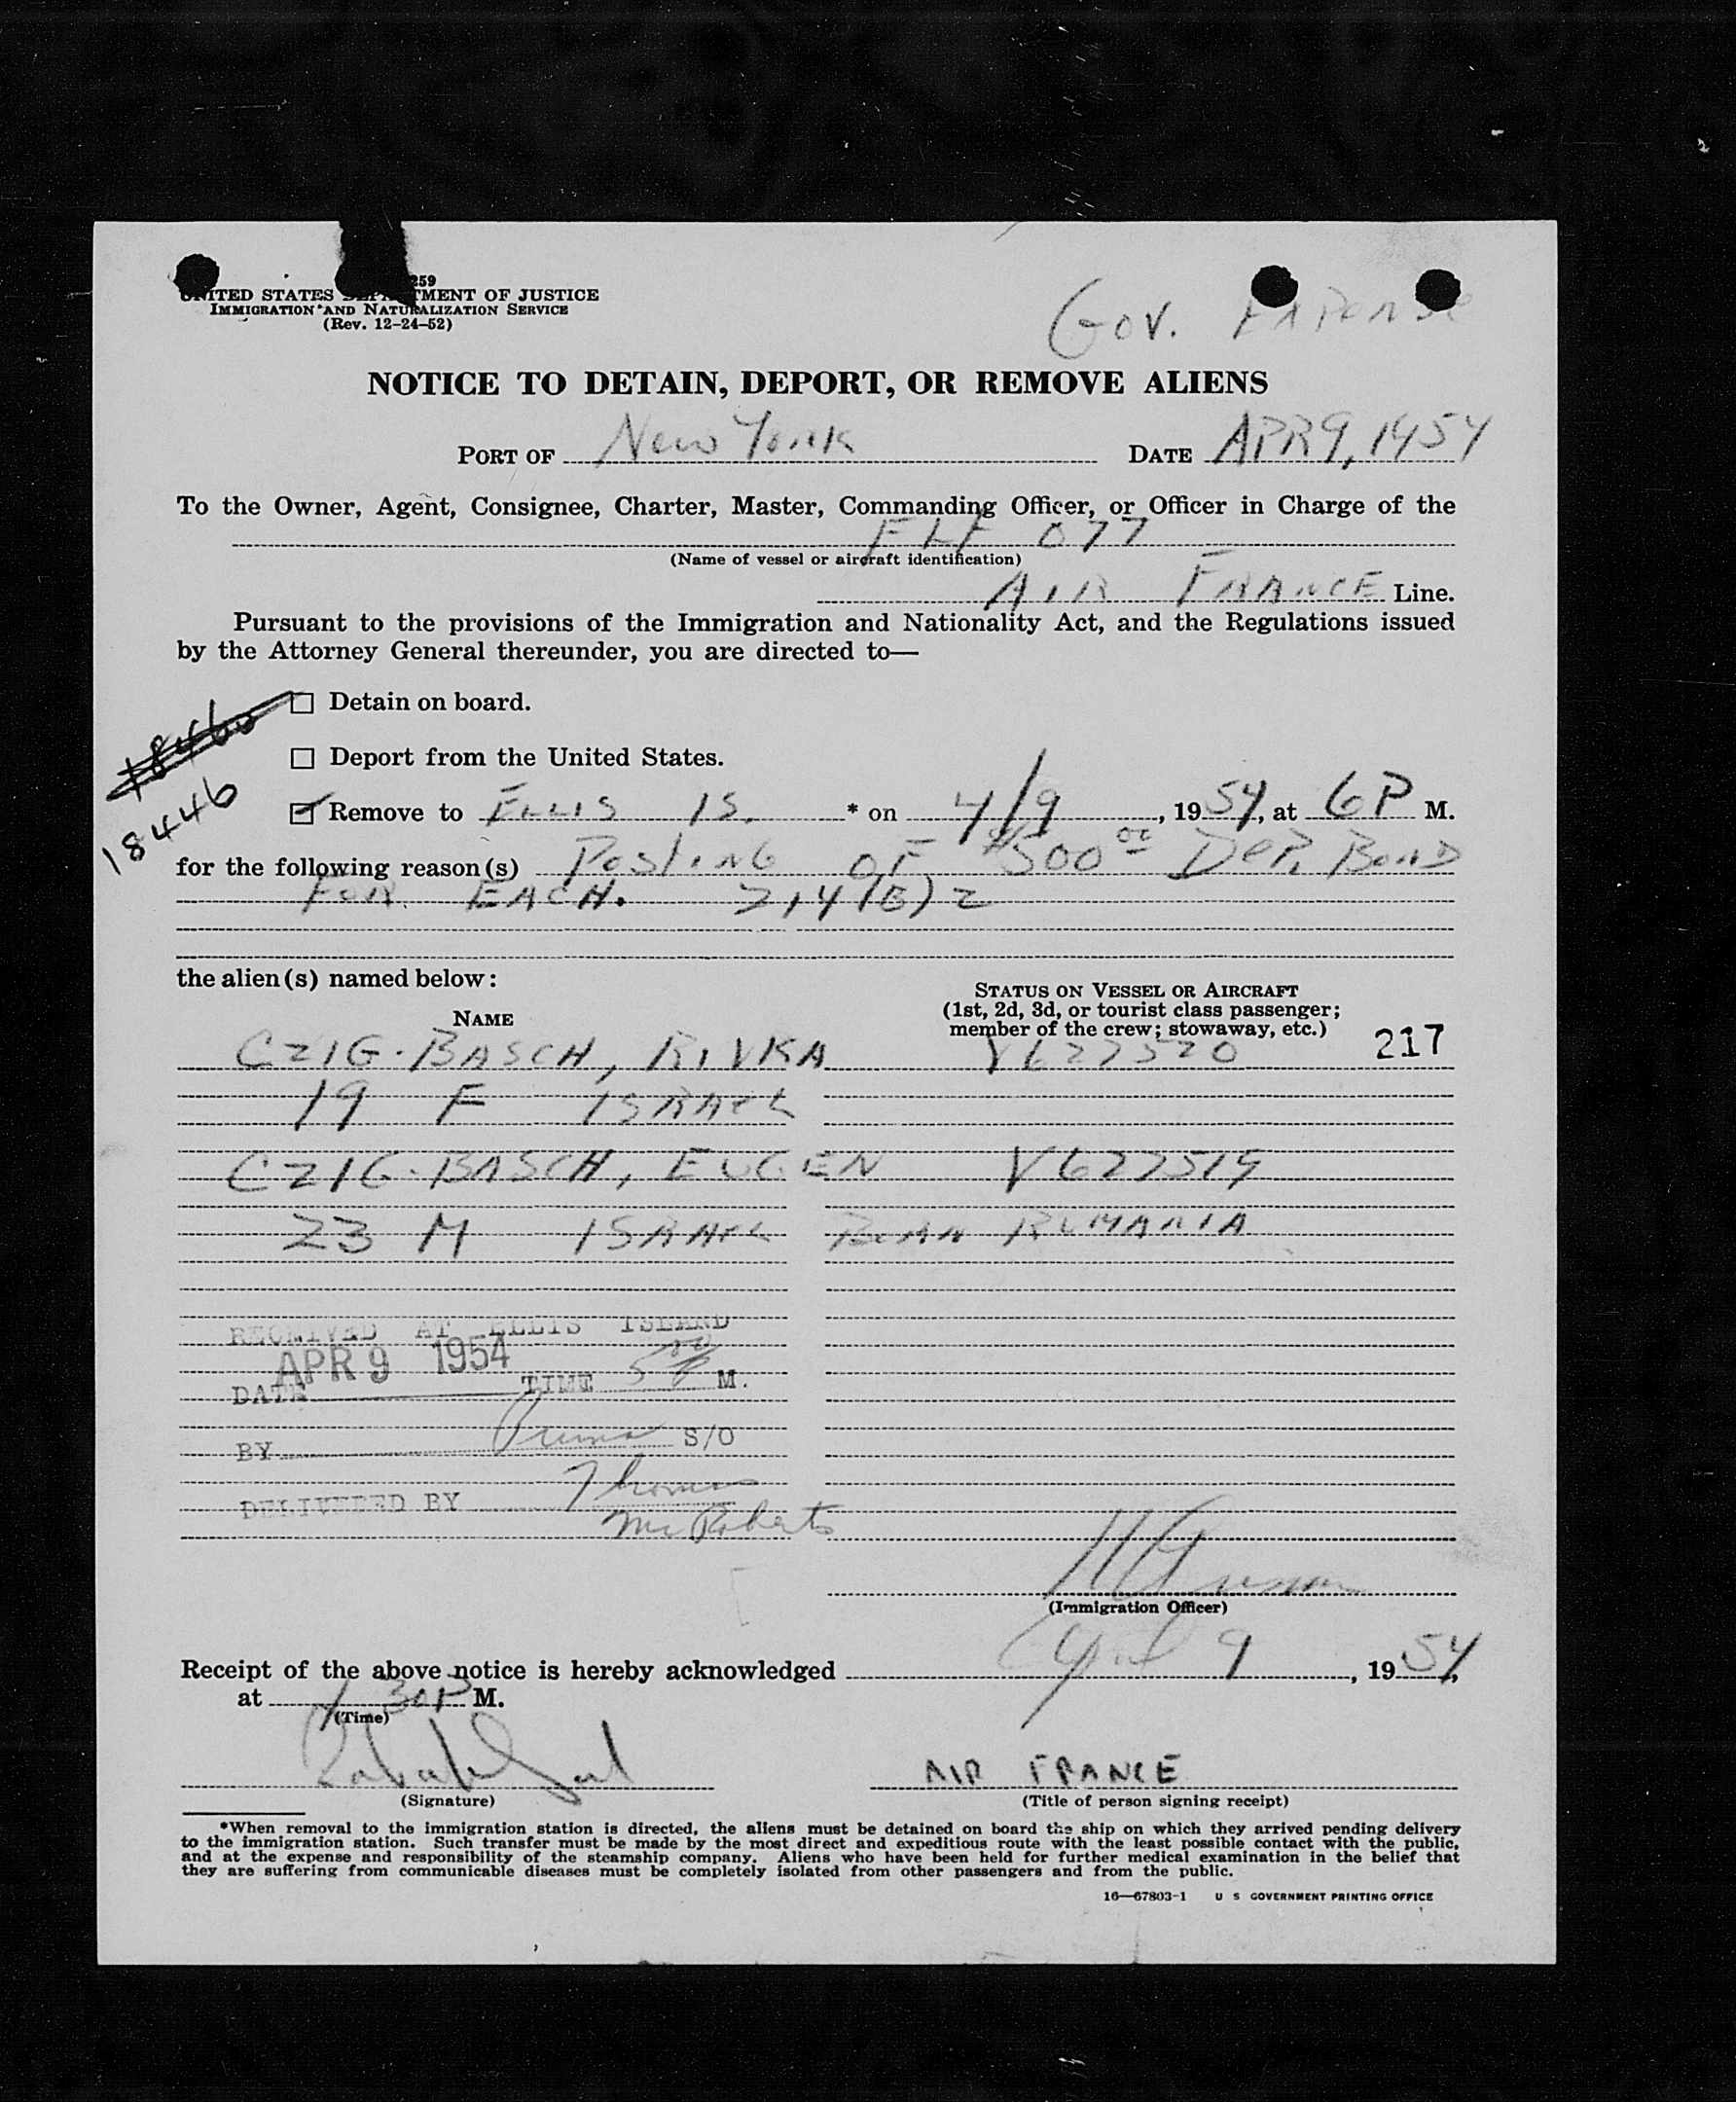 259
UNITED STATES DEPARTMENT OF JUSTICE
IMMIGRATION AND NATURALIZATION SERVICE
(Rev. 12-24-52)
Gov. Expense
NOTICE TO DETAIN, DEPORT, OR REMOVE ALIENS
PORT OF New York DATE APR 9, 1954
To the Owner, Agent, Consignee, Charter, Master, Commanding Officer, or Officer in Charge of the
FLT 077
(Name of vessel or aircraft identification)
AIR FRANCE Line.
Pursuant to the provisions of the Immigration and Nationality Act, and the Regulations issued
by the Attorney General thereunder, you are directed to—
18460
☐ Detain on board.
☐ Deport from the United States.
18446
☑ Remove to ELLIS IS. * on 4/9, 1954, at 6 P M.
for the following reason(s) Posting OF $500 00 Dep. Bond
FOR EACH.
the alien(s) named below:
NAME
STATUS ON VESSEL OR AIRCRAFT
(1st, 2d, 3d, or tourist class passenger;
member of the crew; stowaway, etc.)
217
CZIG-BASCH, RIVKA V627520
19 F ISRAEL
CZIG-BASCH, EUGEN V627519
23 M ISRAEL Born RUMANIA
RECEIVED AT ELLIS ISLAND
DATE APR 9 1954 TIME M.
BY S/O
DELIVERED BY Thomas
McRoberts
(Immigration Officer)
Receipt of the above notice is hereby acknowledged April 9, 1954,
at 30 P M.
(Time)
(Signature)
AIR FRANCE
(Title of person signing receipt)
*When removal to the immigration station is directed, the aliens must be detained on board the ship on which they arrived pending delivery
to the immigration station. Such transfer must be made by the most direct and expeditious route with the least possible contact with the public,
and at the expense and responsibility of the steamship company. Aliens who have been held for further medical examination in the belief that
they are suffering from communicable diseases must be completely isolated from other passengers and from the public.
16—67803-1 U S GOVERNMENT PRINTING OFFICE